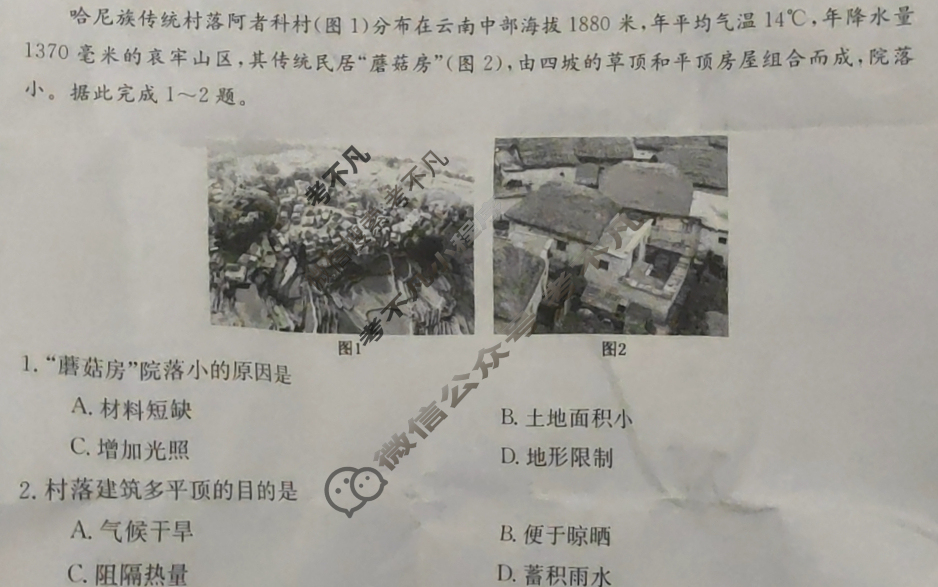 哈尼族传统村落阿者科村(图1)分布在云南中部海拔1880米,年平均气温14℃,年降水量
1370毫米的哀牢山区,其传统民居“蘑菇房”(图2),由四坡的草顶和平顶房屋组合而成,院落
小。据此完成1～2题。
考不凡
考不凡
考不凡
图1
图2
1.“蘑菇房”院落小的原因是
A.材料短缺
B.土地面积小
C.增加光照
D.地形限制
微信公众号
2.村落建筑多平顶的目的是
A.气候干旱
B.便于晾晒
C.阻隔热量
D.蓄积雨水